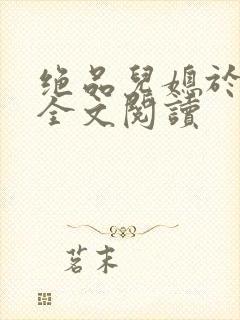 绝品兒媳於
全文閱讀
茗末